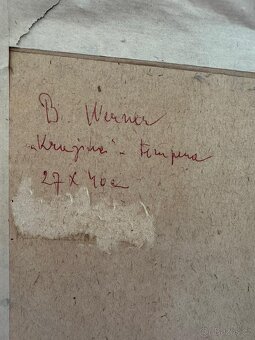 B. Werner
„Krajina" - tempera
27 x 40 cm